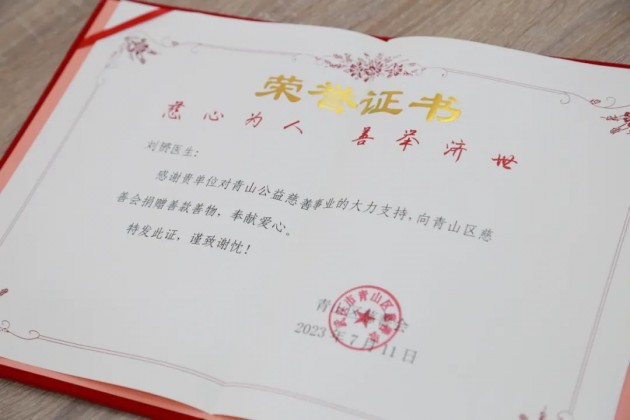 荣誉证书
慈心为人 善举济世
刘赟医生：
感谢贵单位对青山公益慈善事业的大力支持，向青山区慈
善会捐赠善款善物，奉献爱心。
特发此证，谨致谢忱！
青山区慈善会
2023年7月11日